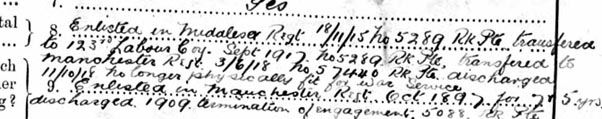 7. Yes
tal
8. Enlisted in Middlesex Regt. 18/11/15 No 5289 Rk Pte. transfered
to 123rd Labour Coy. Sept 1917 No 5289 Rk Pte, transfered to
ch Manchester Regt. 3/6/18 No 57440 Rk Pte. discharged
er 11/10/18 no longer physically fit for war service
g? 9. Enlisted in Manchester Regt Oct 1897 for 7 & 5 yrs
discharged 1909 termination of engagement. 5088 Rk Pte